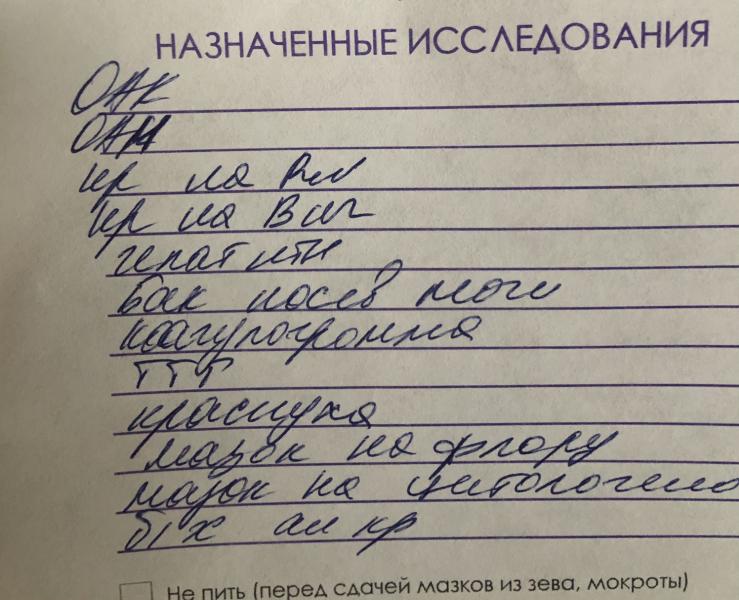 НАЗНАЧЕННЫЕ ИССЛЕДОВАНИЯ
ОАК
ОАМ
кр на RW
кр на Вич
гепатиты
бак посев мочи
коагулограмма
ТТГ
краснуха
мазок на флору
мазок на цитологию
б/х ан кр
Не пить (перед сдачей мазков из зева, мокроты)